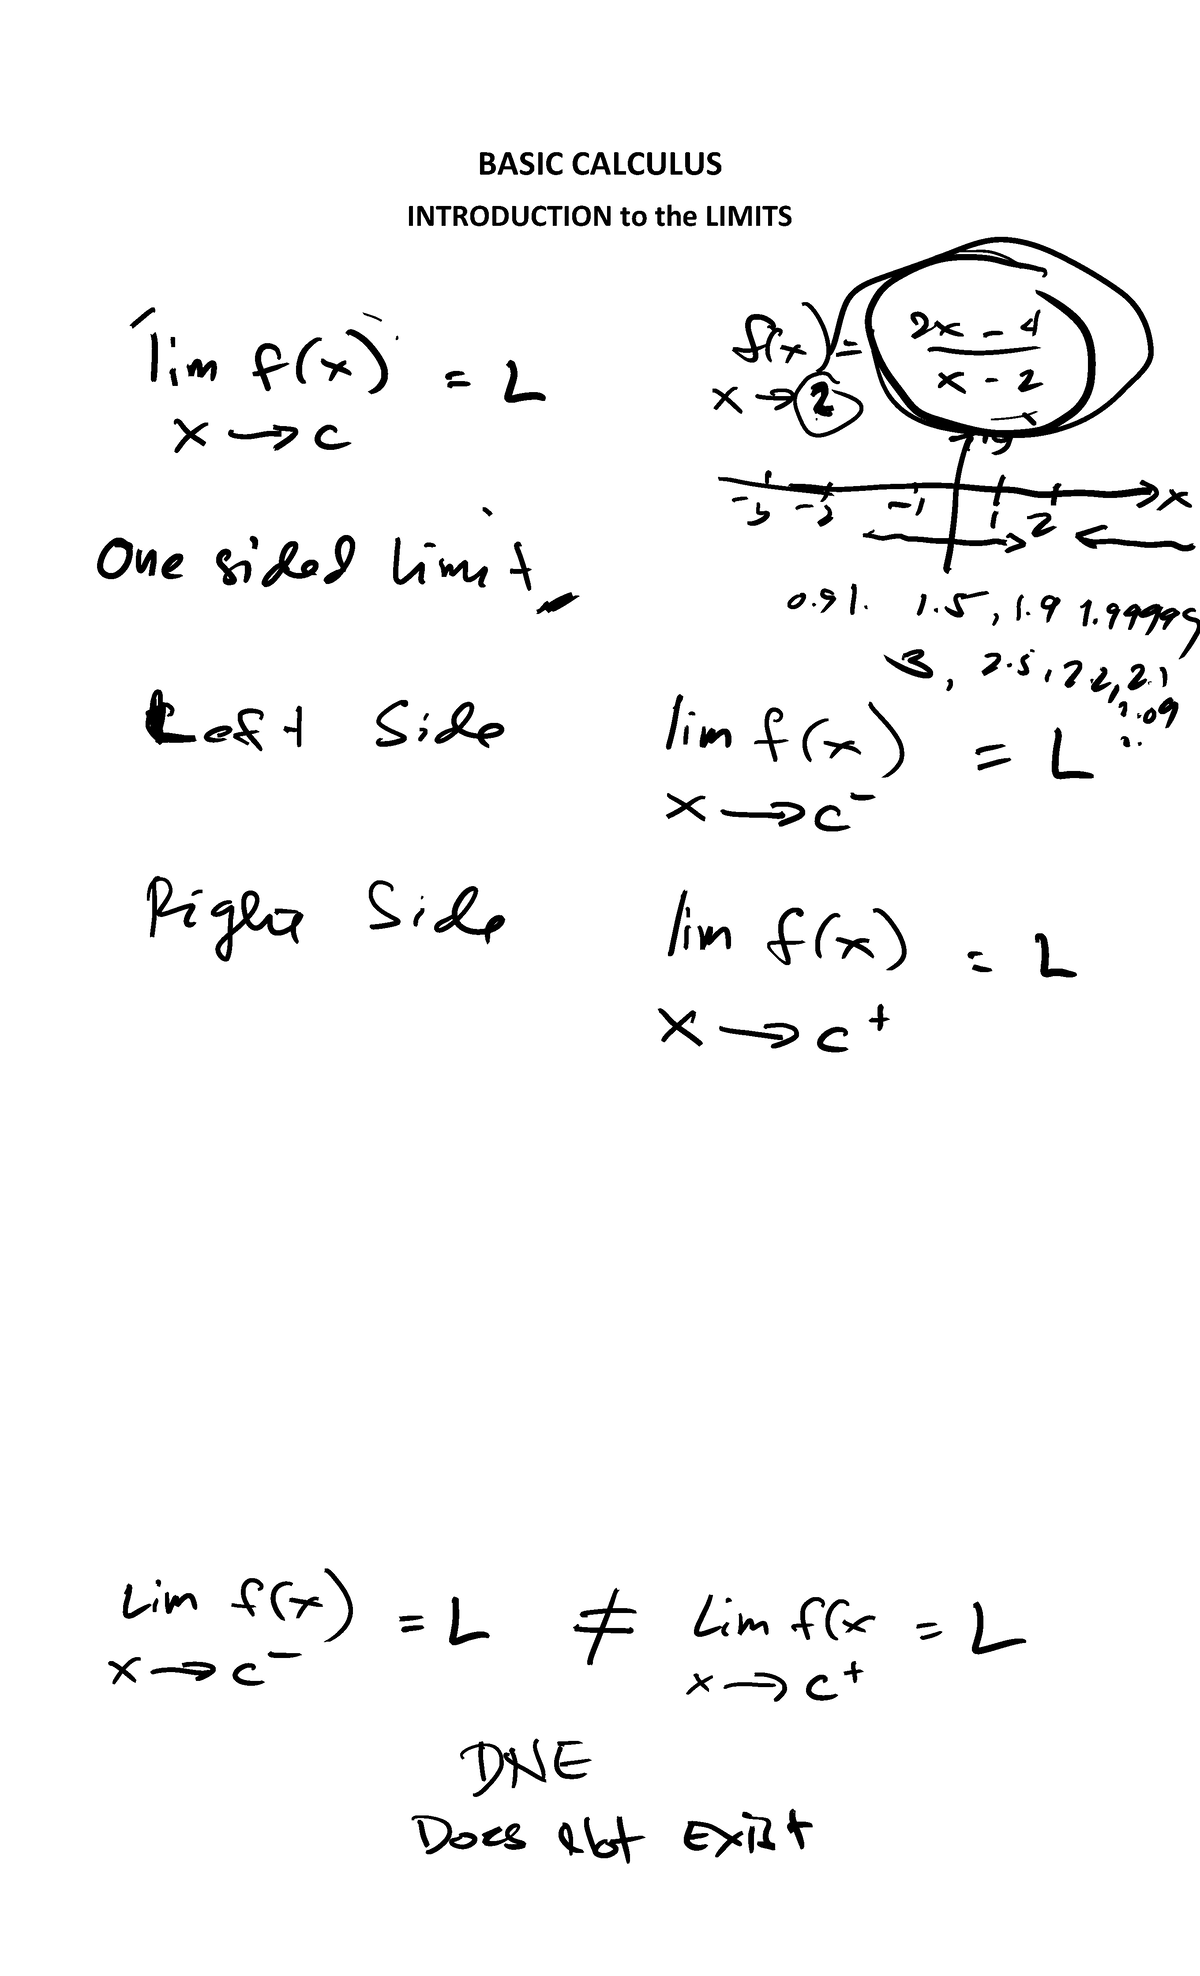 BASIC CALCULUS
INTRODUCTION to the LIMITS
lim f(x) = L
x → c
f(x) = 2x - 4
x - 2
x → 2
y
-3 -2 -1 1 2 x
One sided Limit
0.91. 1.5, 1.9 1.99999
3, 2.5, 2.2, 2.1
2.09
Left Side lim f(x) = L
x → c⁻
Right Side lim f(x) = L
x → c⁺
Lim f(x) = L ≠ Lim f(x = L
x → c⁻ x → c⁺
DNE
Does Not Exist